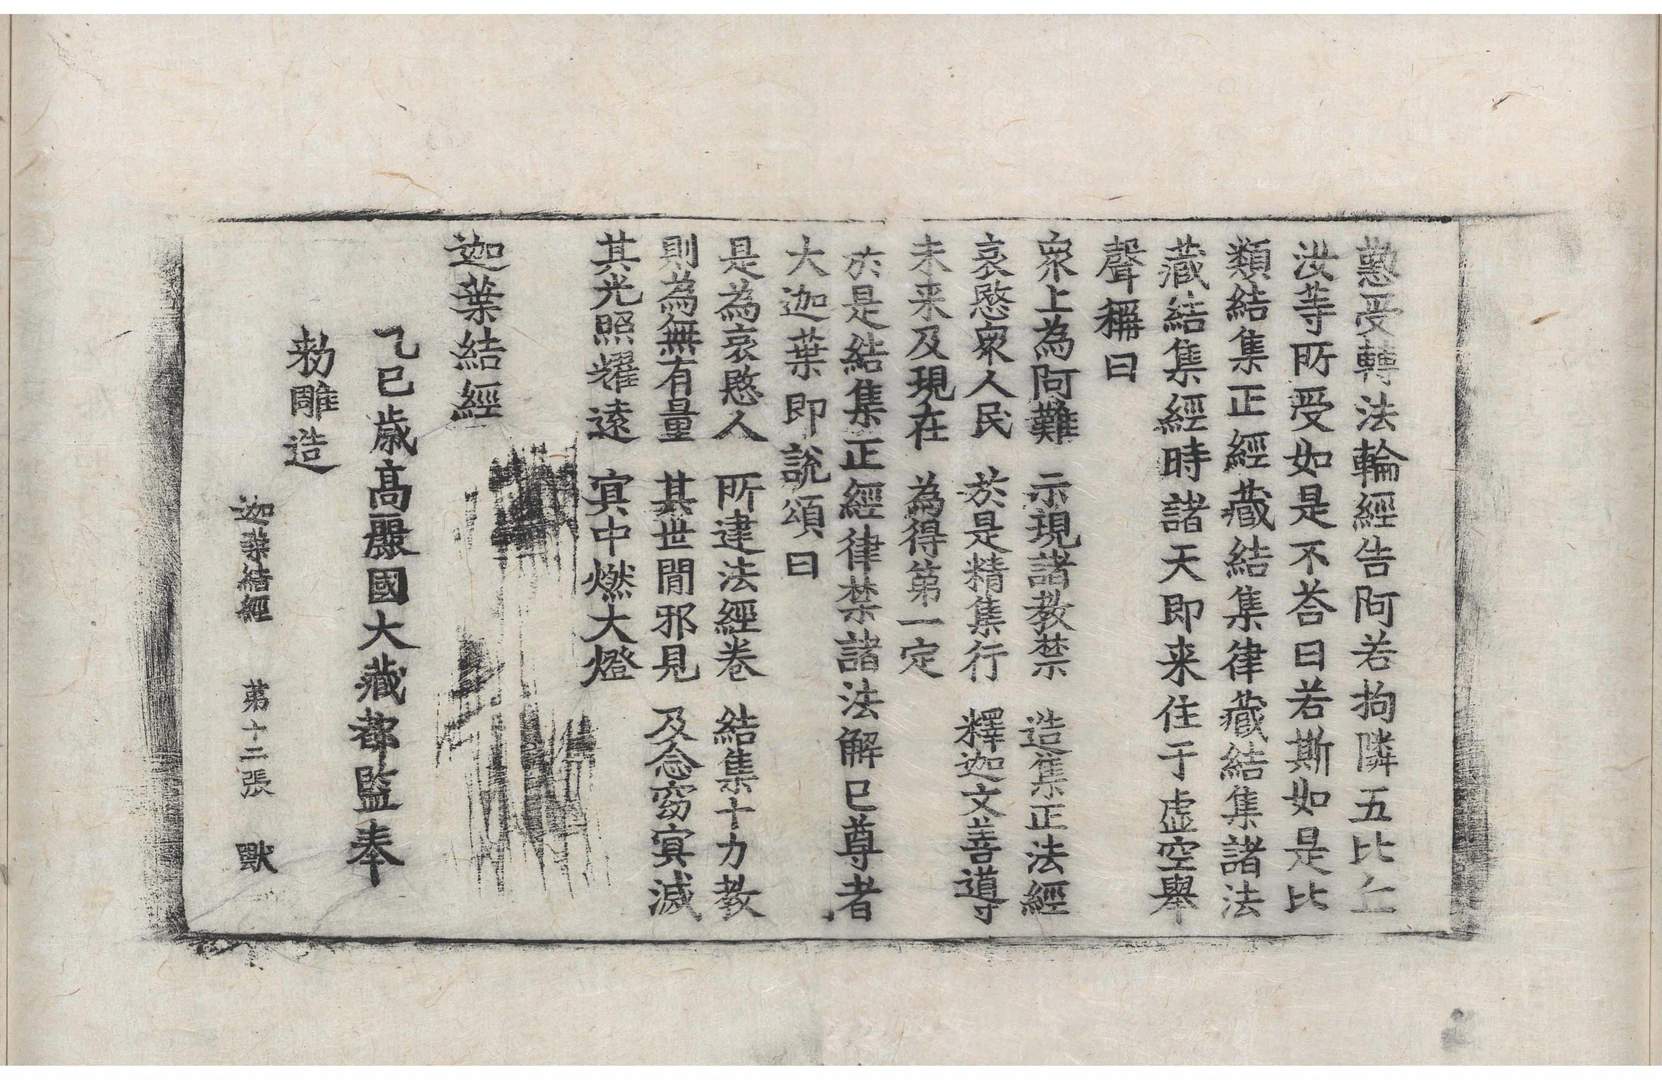 懃受轉法輪經告阿若拘隣五比丘
汝等所受如是不荅曰若斯如是比
類結集正經藏結集律藏結集諸法
藏結集經時諸天即来住于虛空舉
聲稱曰
衆上為阿難　示現諸教禁　造集正法經
哀愍衆人民　於是精集行　釋迦文善導
未来及現在　為得第一定
於是結集正經律禁諸法解已尊者
大迦葉即說頌曰
是為哀愍人　所建法經卷　結集十力教
則為無有量　其世間邪見　及念窈冥滅
其光照耀遠　冥中燃大燈
迦葉結經
乙巳歲高麗國大藏都監奉
勑雕造
迦葉結經　第十二張　獸